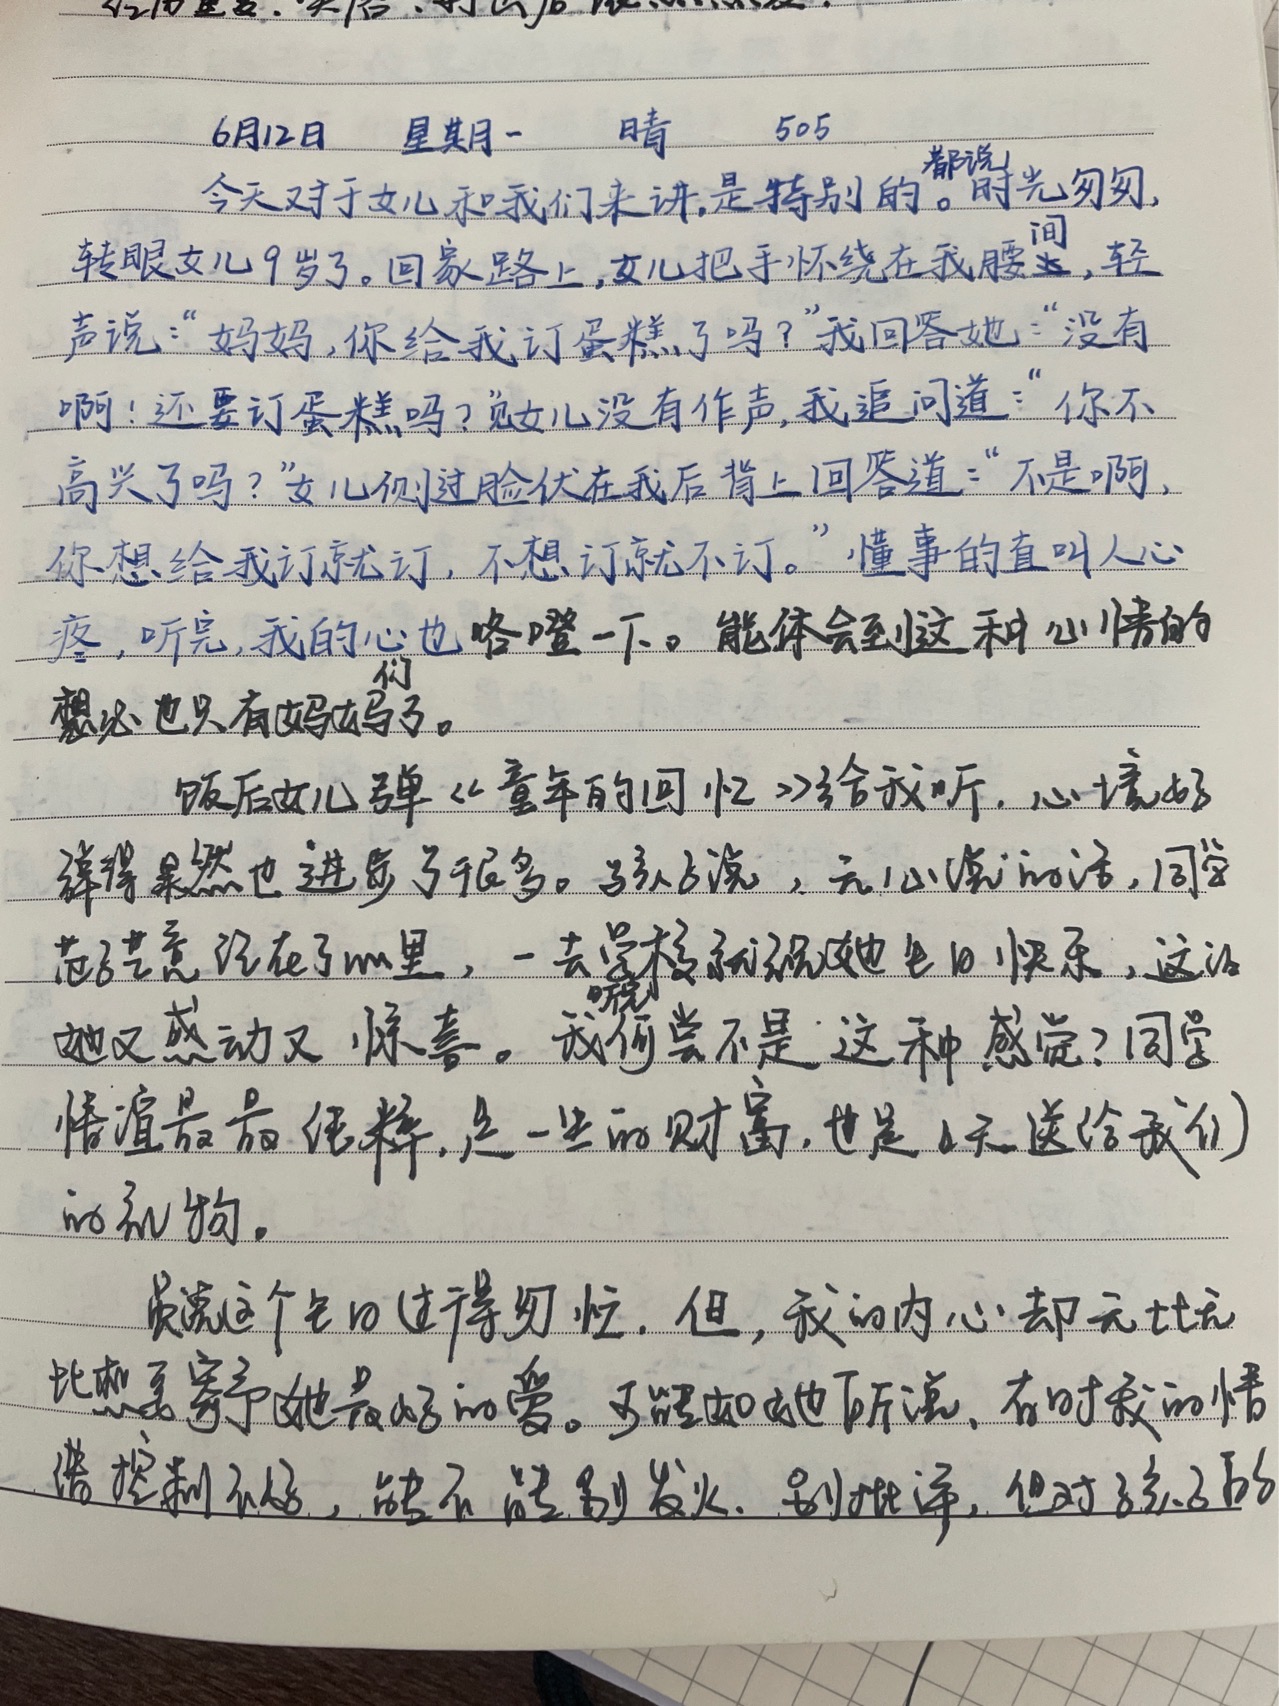 6月12日 星期一 晴 505
今天对于女儿和我们来讲,是特别的。都说时光匆匆,
转眼女儿9岁了。回家路上,女儿把手怀绕在我腰间,轻
声说:“妈妈,你给我订蛋糕了吗?”我回答她:“没有
啊!还要订蛋糕吗?”见女儿没有作声,我追问道:“你不
高兴了吗?”女儿侧过脸伏在我后背上回答道:“不是啊,
你想给我订就订,不想订就不订。”懂事的直叫人心
疼,听完,我的心也咯噔一下。能体会到这种心情的
想必也只有妈妈们了。
饭后女儿弹《童年的回忆》给我听,心境好
弹得果然也进步了很多。孩子说,无心说的话,同学
范子芸竟记在了心里,一去学校就祝她生日快乐,这让
她又感动又惊喜。听完我何尝不是这种感觉?同学
情谊最最纯粹,是一生的财富,也是上天送给我们
的礼物。
虽说这个生日过得匆忙,但,我的内心却无比无
比想要寄予她最好的爱。可能如她所说,有时我的情
绪控制不好,能不能别发火、别批评,但对孩子的